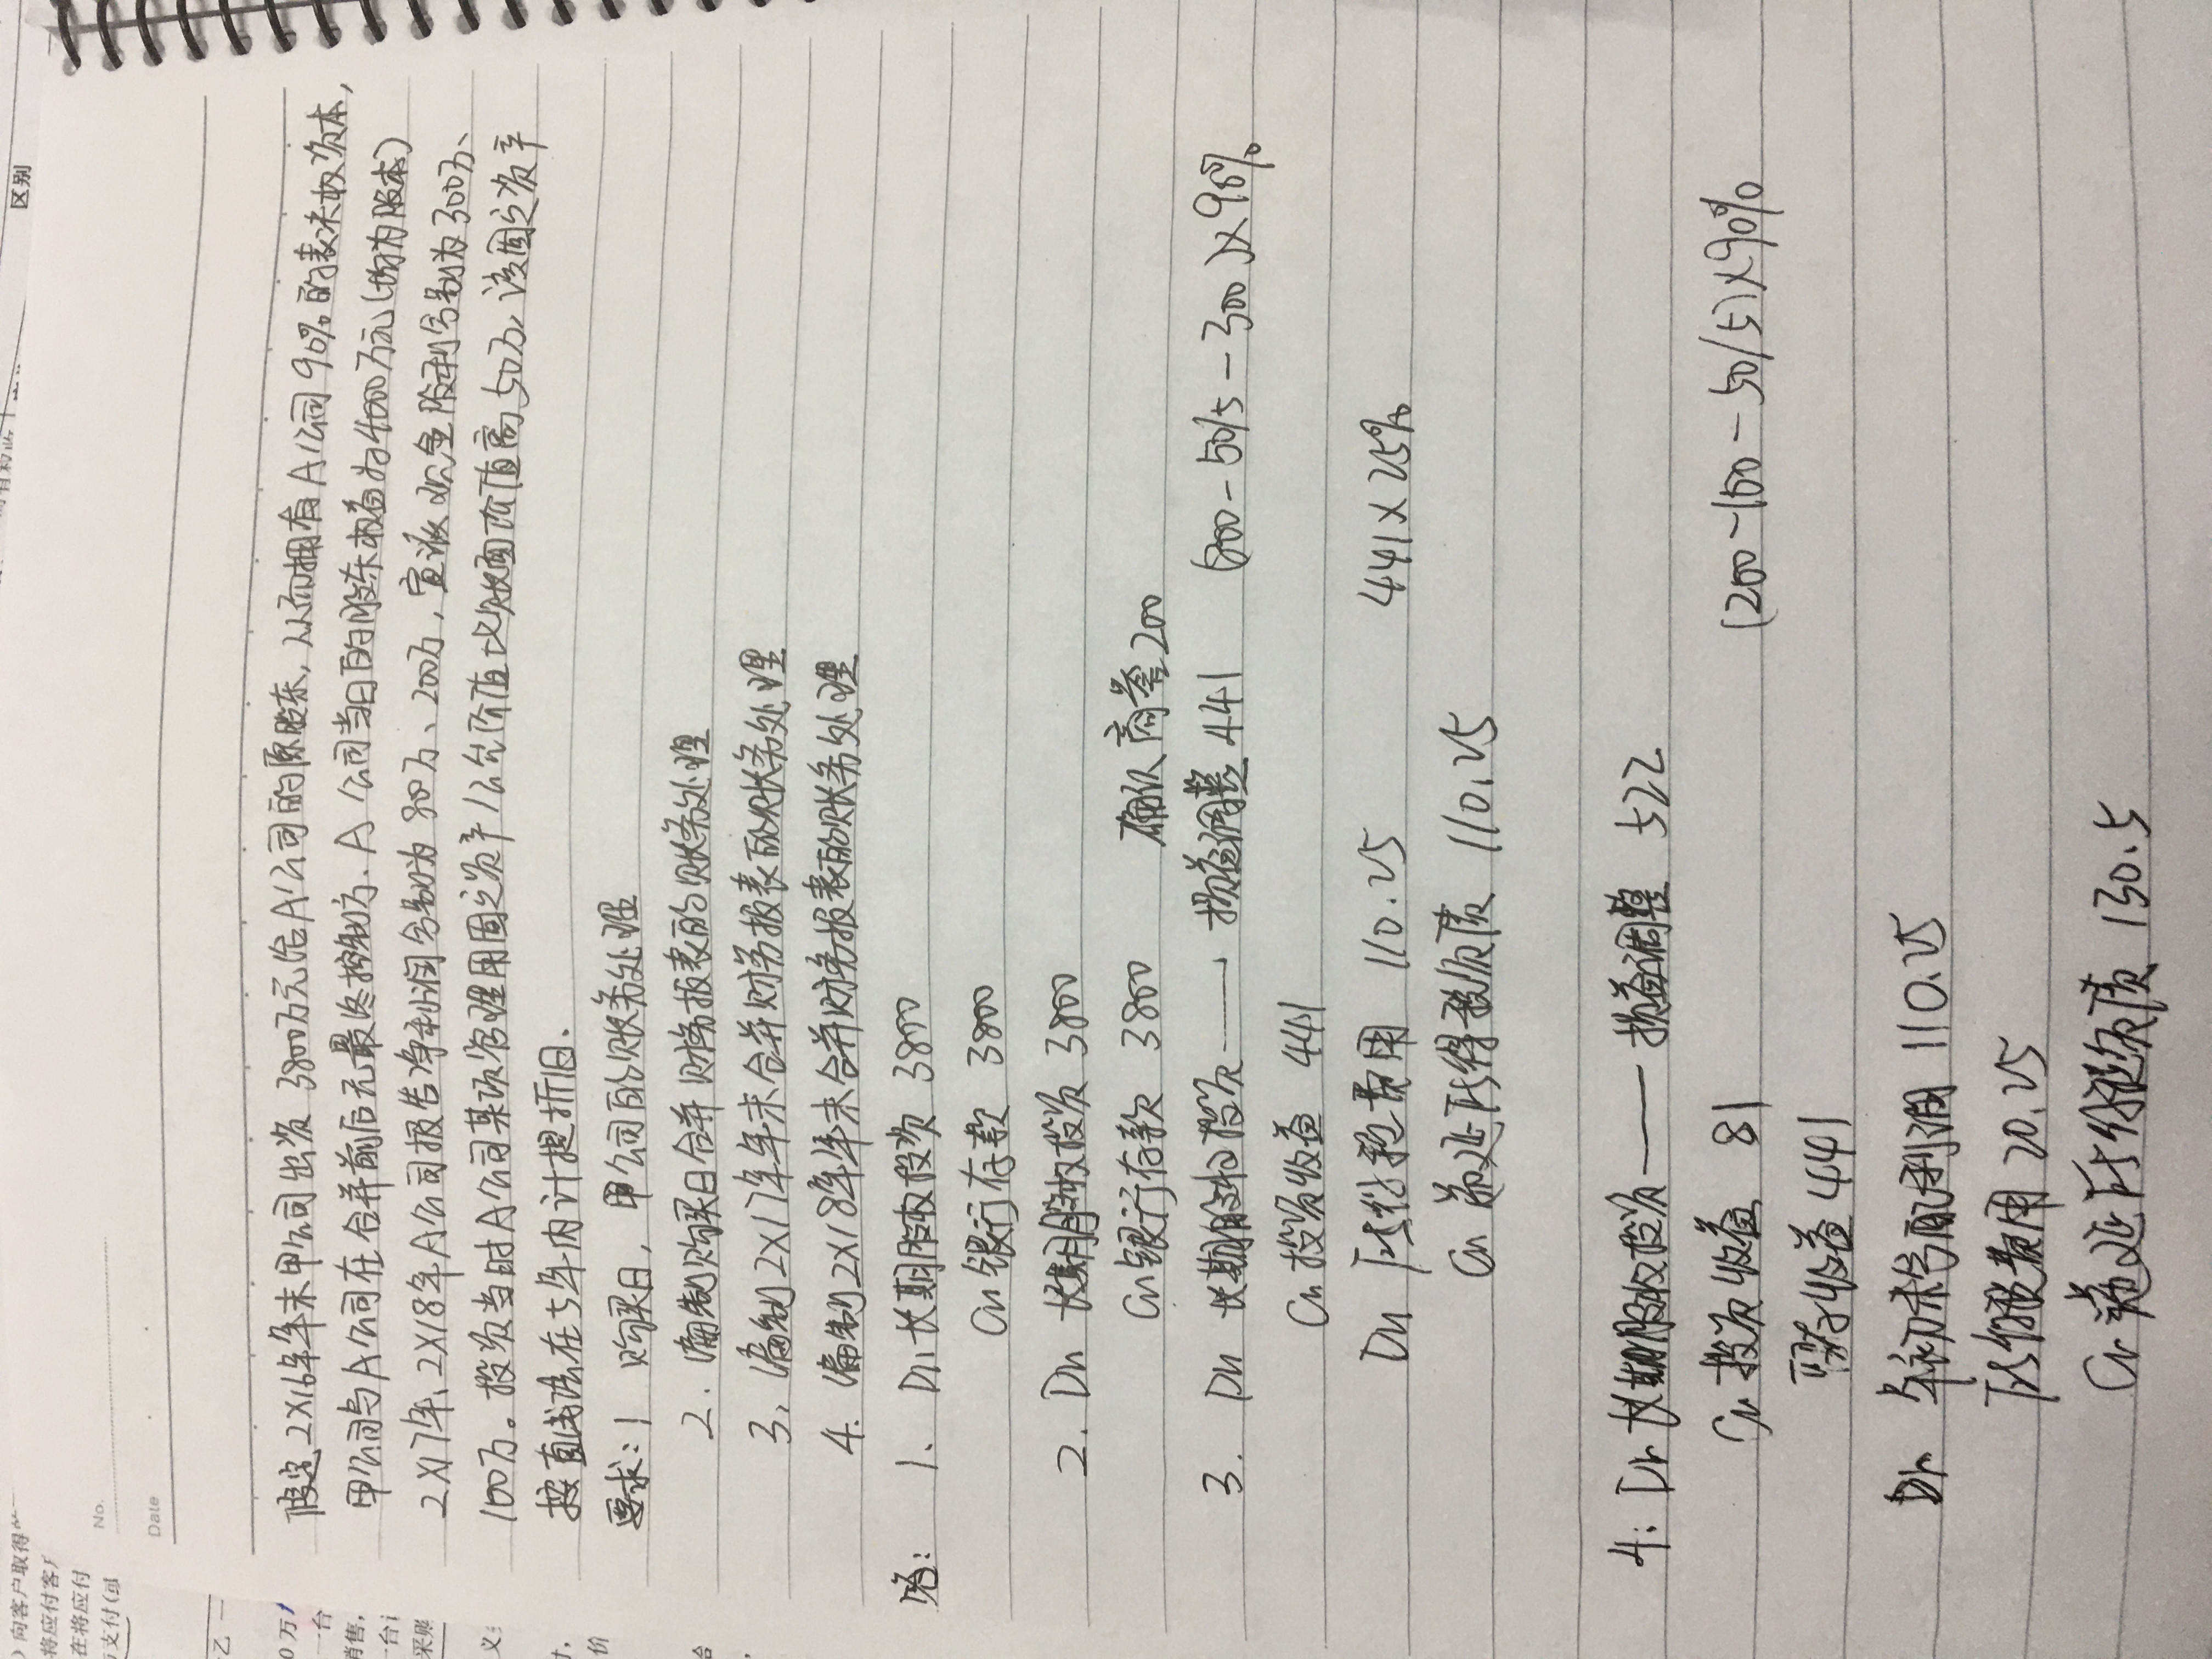 ）向客户取得
将应付客户
在将应付
支付（或
区别
No.
Date
乙
0万
一台
销售，
一台
采购
义
价
假定2X16年年末甲公司出资 3800万元给A公司的原股东，从而拥有A公司90%的表决权资本，
甲公司与A公司在合并前后无最终控制方．A 公司当日的股东权益为4000万元（均为股本）
2X17年、2X18年A公司报告净利润分别为 800万、200万，宣派现金股利分别为300万、
100万。投资当时A公司某项管理用固定资产公允价值比账面价值高50万，该固定资产
按直线法在5年内计提折旧．
要求：1 购买日，甲公司的账务处理
2．编制购买日合并财务报表的账务处理
3、编制2X17年年末合并财务报表的账务处理
4．编制2X18年年末合并财务报表的账务处理
答： 1、 Dr 长期股权投资 3800
Cr 银行存款 3800
2. Dr 长期股权投资 3800
Cr 银行存款 3800 确认商誉200
3. Dr 长期股权投资——损益调整 441 (800-50/5-300)X90%
Cr 投资收益 441
Dr 所得税费用 110.25 441X25%
Cr 递延所得税负债 110.25
4: Dr 长期股权投资——损益调整 522
Cr 投资收益 81 (200-100-50/5)X90%
留存收益 441
Dr 年初未分配利润 110.25
所得税费用 20.25
Cr 递延所得税负债 130.5